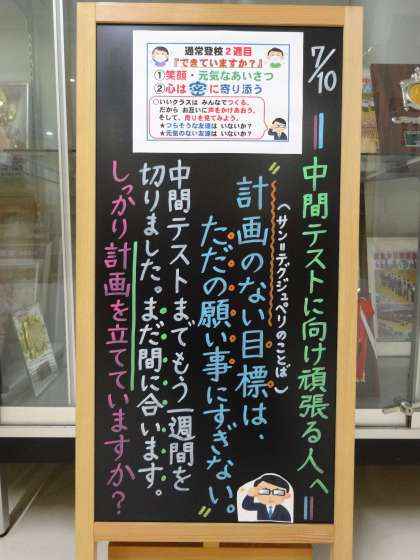 通常登校2週目
『できていますか?』
①笑顔・元気なあいさつ
②心は空に寄り添う
○いいクラスは みんなでつくる。
だから お互いに声をかけあおう。
そして、周りを見てみよう。
★つらそうな友達は いないか?
★元気のない友達は いないか?
7/10
中間テストに向け頑張る人へ
(サン=テグジュペリのことば)
"計画のない目標は、
ただの願い事にすぎない。"
中間テストまでもう一週間を
切りました。まだ間に合います。
しっかり計画を立てていますか?